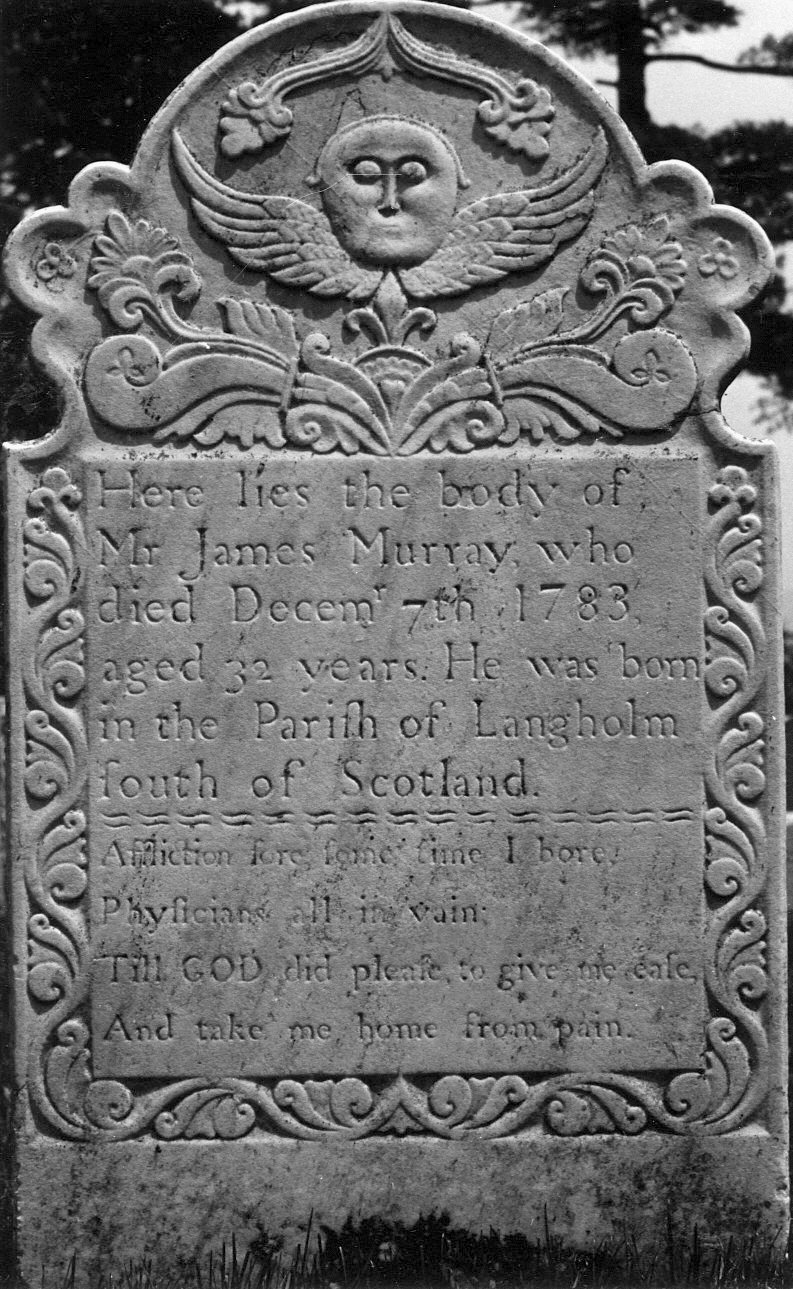 Here lies the body of
Mr James Murray, who
died Decemʳ 7th 1783,
aged 32 years. He was born
in the Pariſh of Langholm
ſouth of Scotland.
Affliction ſore, ſome time I bore,
Phyſicians all in vain;
Till GOD did pleaſe, to give me eaſe,
And take me home from pain.